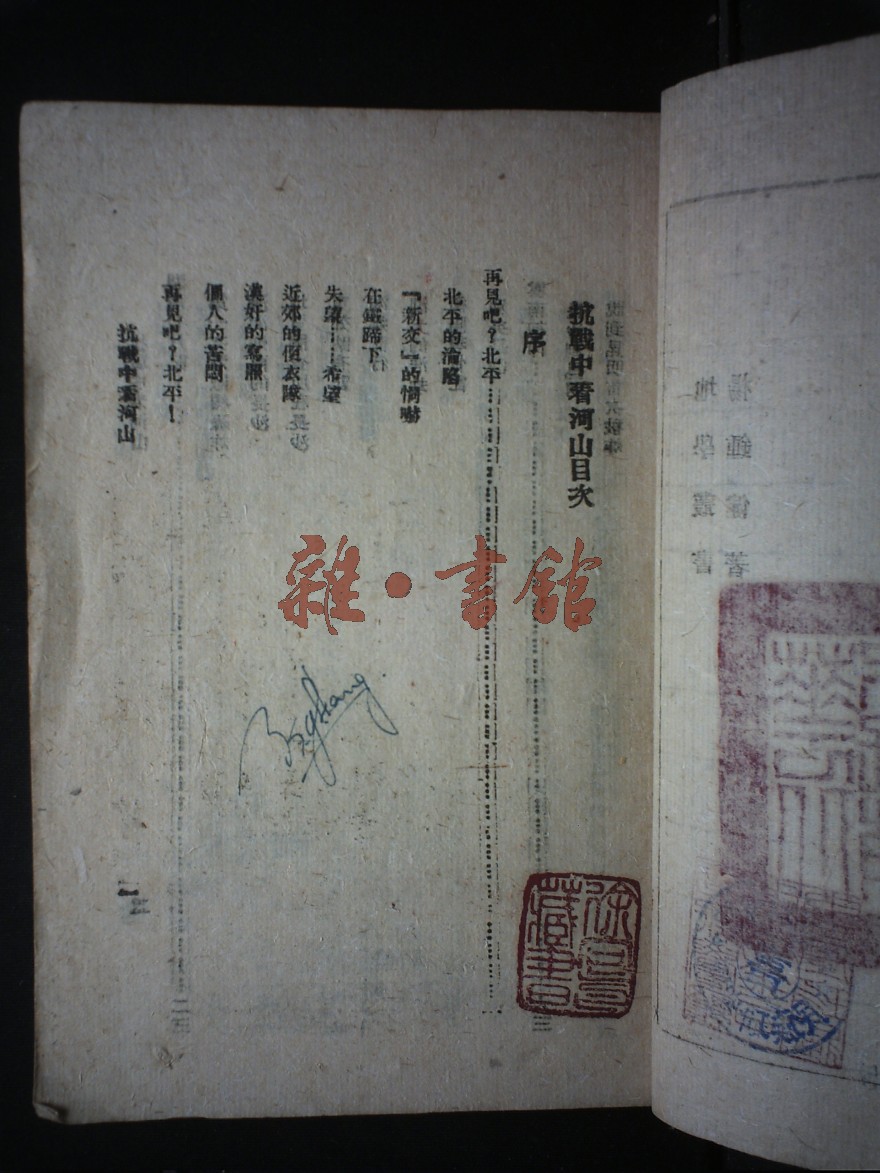 抗戰中看河山目次
序
再見吧?北平
北平的淪陷
『新交』的恫嚇
在鐵蹄下
失望……希望
近郊的便衣隊
漢奸的寫照
個人的苦悶
再見吧?北平!
抗戰中看河山
雜·書館
藏書